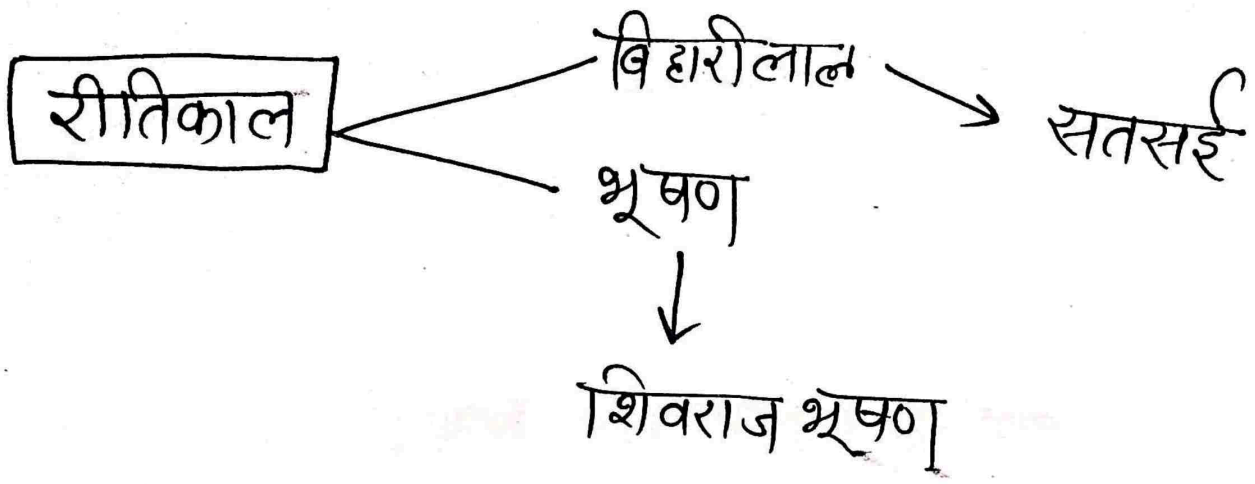 रीतिकाल
बिहारीलाल
सतसई
भूषण
शिवराज भूषण